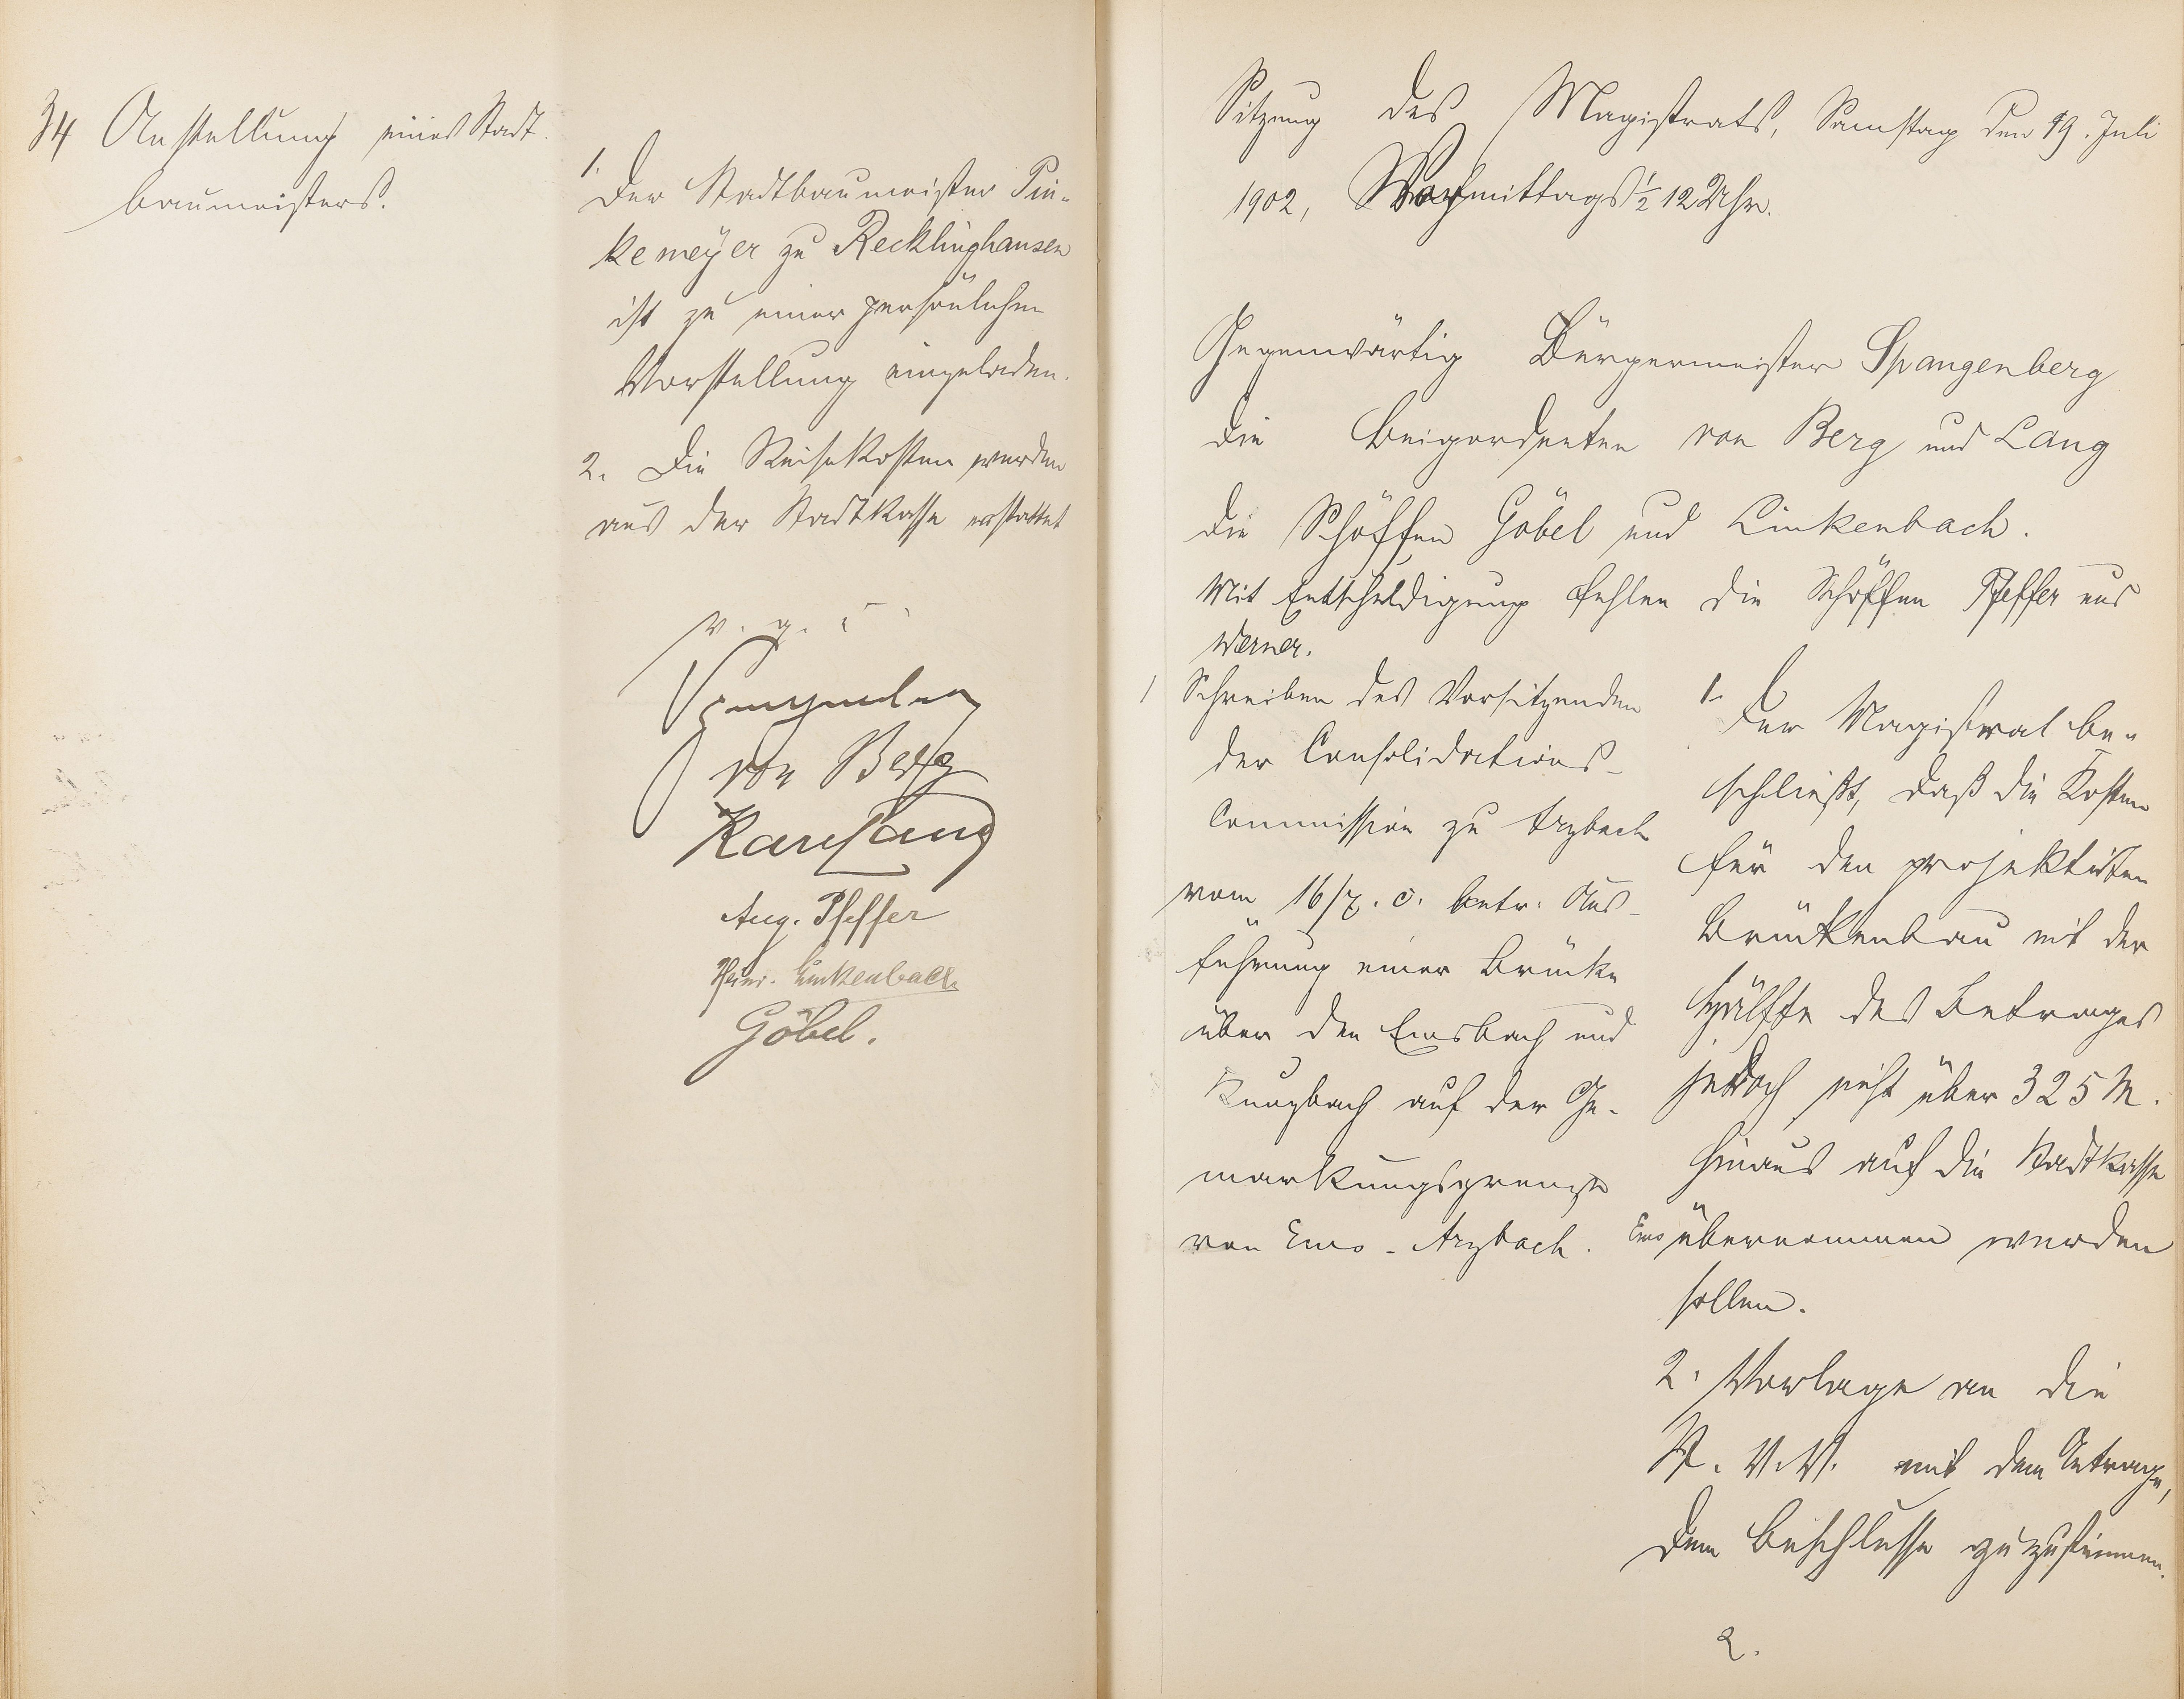 34 Anstellung eines Stadt-
baumeisters.
1. Der Stadtbaumeister Pin-
kemeyer zu Recklinghausen
ist zu einer persönlichen
Vorstellung eingeladen.
2. Die Reisekosten werden
aus der Stadtkasse erstattet
v. g. u
Spangenberg
von Berg
Karl Lang
Aug. Pfeffer
Heinr. Linkenbach
Göbel.
Sitzung des Magistrats, Samstag den 19. Juli
1902, Vormittags ½ 12 Uhr.
Gegenwärtig Bürgermeister Spangenberg
die Beigeordneten von Berg und Lang
die Schöffen Göbel und Linkenbach.
Mit Entschuldigung fehlen die Schöffen Pfeffer und
Werner.
1 Schreiben des Vorsitzenden
der Consolidations-
Commission zu Arzbach
vom 16/7. c. betr. Aus-
führung einer Brücke
über den Emsbach und
auf der Ge-
markungsgrenze
von Ems-Arzbach.
1. Der Magistrat be-
schließt, daß die Kosten
für den projektirten
Brückenbau mit der
Hälfte des Betrages
jedoch nicht über 325 M.
hinaus auf die Stadtkasse
Ems übernommen werden
sollen.
2. Vorlage an die
St. V. V. mit dem Antrage,
dem Beschlusse zuzustimmen.
2.